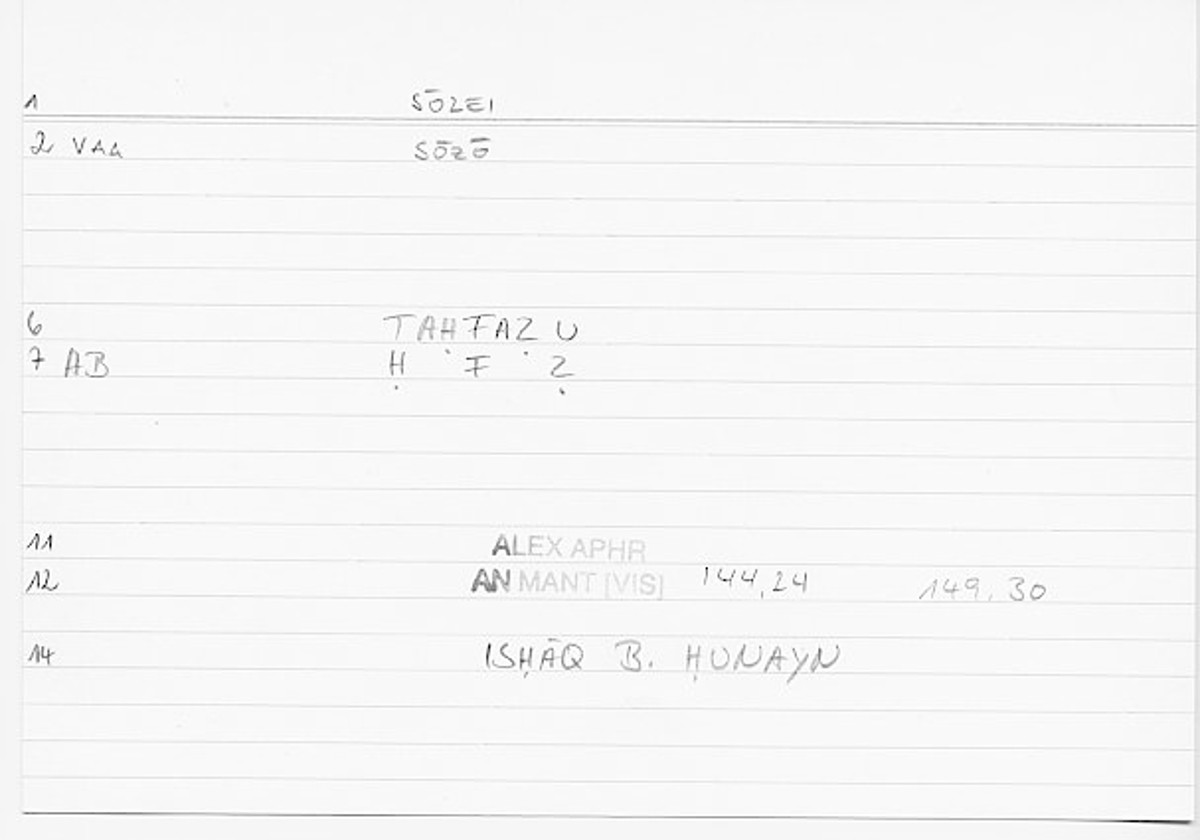 1 SŌZEI
2 VAA SŌZŌ
6 TAḤFAẒ U
7 AB Ḥ F Ẓ
11 ALEX APHR
12 AN MANT [VIS] 144,24 149,30
14 ISḤĀQ B. ḤUNAYN